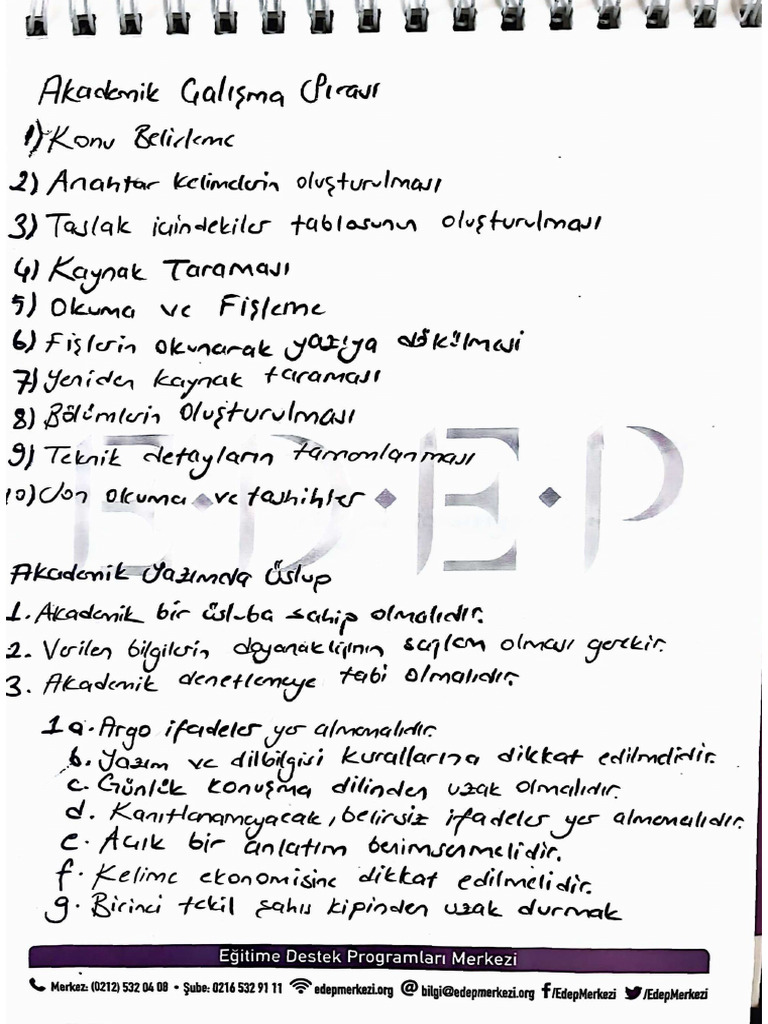 Akademik Çalışma Sırası
1) Konu Belirleme
2) Anahtar kelimelerin oluşturulması
3) Taslak içindekiler tablosunun oluşturulması
4) Kaynak Taraması
5) Okuma ve Fişleme
6) Fişlerin okunarak yazıya dökülmesi
7) Yeniden kaynak taraması
8) Bölümlerin Oluşturulması
9) Teknik detayların tamamlanması
10) Son okuma ve tashihler
E·D·E·P
Akademik Yazımda Üslup
1. Akademik bir üsluba sahip olmalıdır.
2. Verilen bilgilerin dayanaklığının sağlam olması gerekir.
3. Akademik denetlemeye tabi olmalıdır.
1 a. Argo ifadeler yer almamalıdır.
b. Yazım ve dilbilgisi kurallarına dikkat edilmelidir.
c. Günlük konuşma dilinden uzak olmalıdır.
d. Kanıtlanamayacak, belirsiz ifadeler yer almamalıdır.
e. Açık bir anlatım benimsenmelidir.
f. Kelime ekonomisine dikkat edilmelidir.
g. Birinci tekil şahıs kipinden uzak durmak
Eğitime Destek Programları Merkezi
Merkez: (0212) 532 04 08 • Şube: 0216 532 91 11 edepmerkezi.org @ bilgi@edepmerkezi.org f/EdepMerkezi /EdepMerkezi